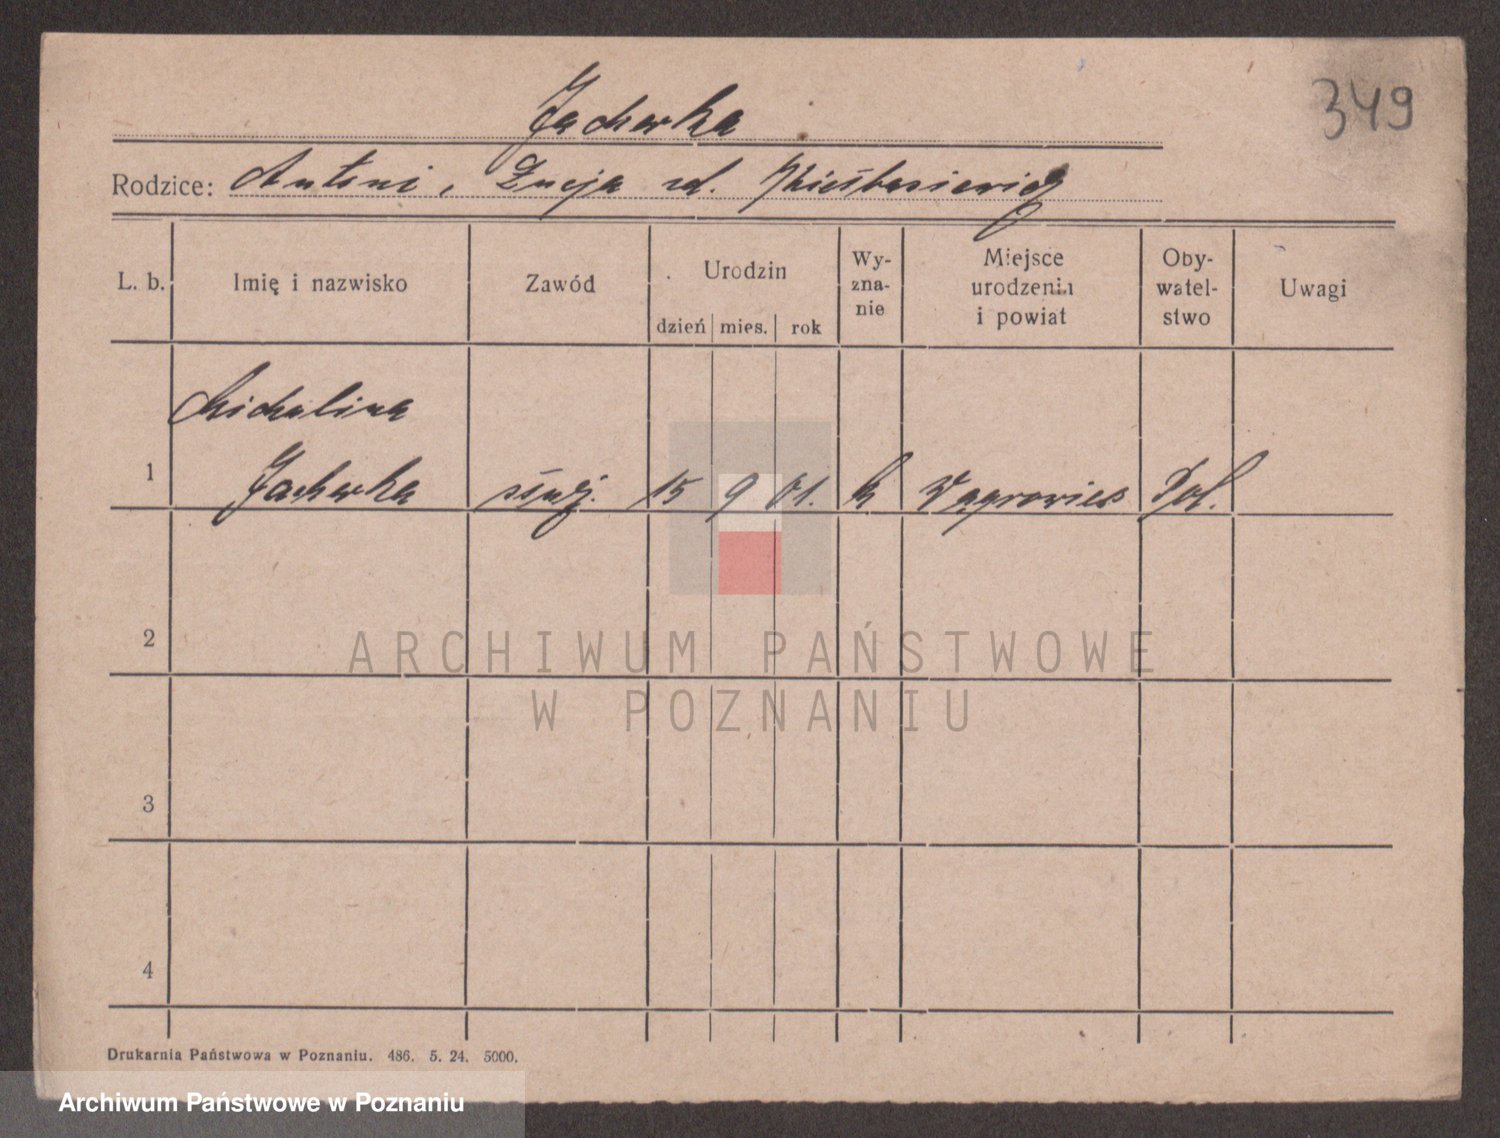 349
Jacherka
Rodzice: Antoni, Łucja zd.
L. b. Imię i nazwisko Zawód Urodzin dzień mies. rok Wy-zna-nie Miejsce urodzenia i powiat Oby-watel-stwo Uwagi
Michalina
1 Jacherka służ. 15 9 01. k Wągrowiec Pol.
2
ARCHIWUM PAŃSTWOWE
W POZNANIU
3
4
Drukarnia Państwowa w Poznaniu. 486. 5. 24. 5000.
Archiwum Państwowe w Poznaniu